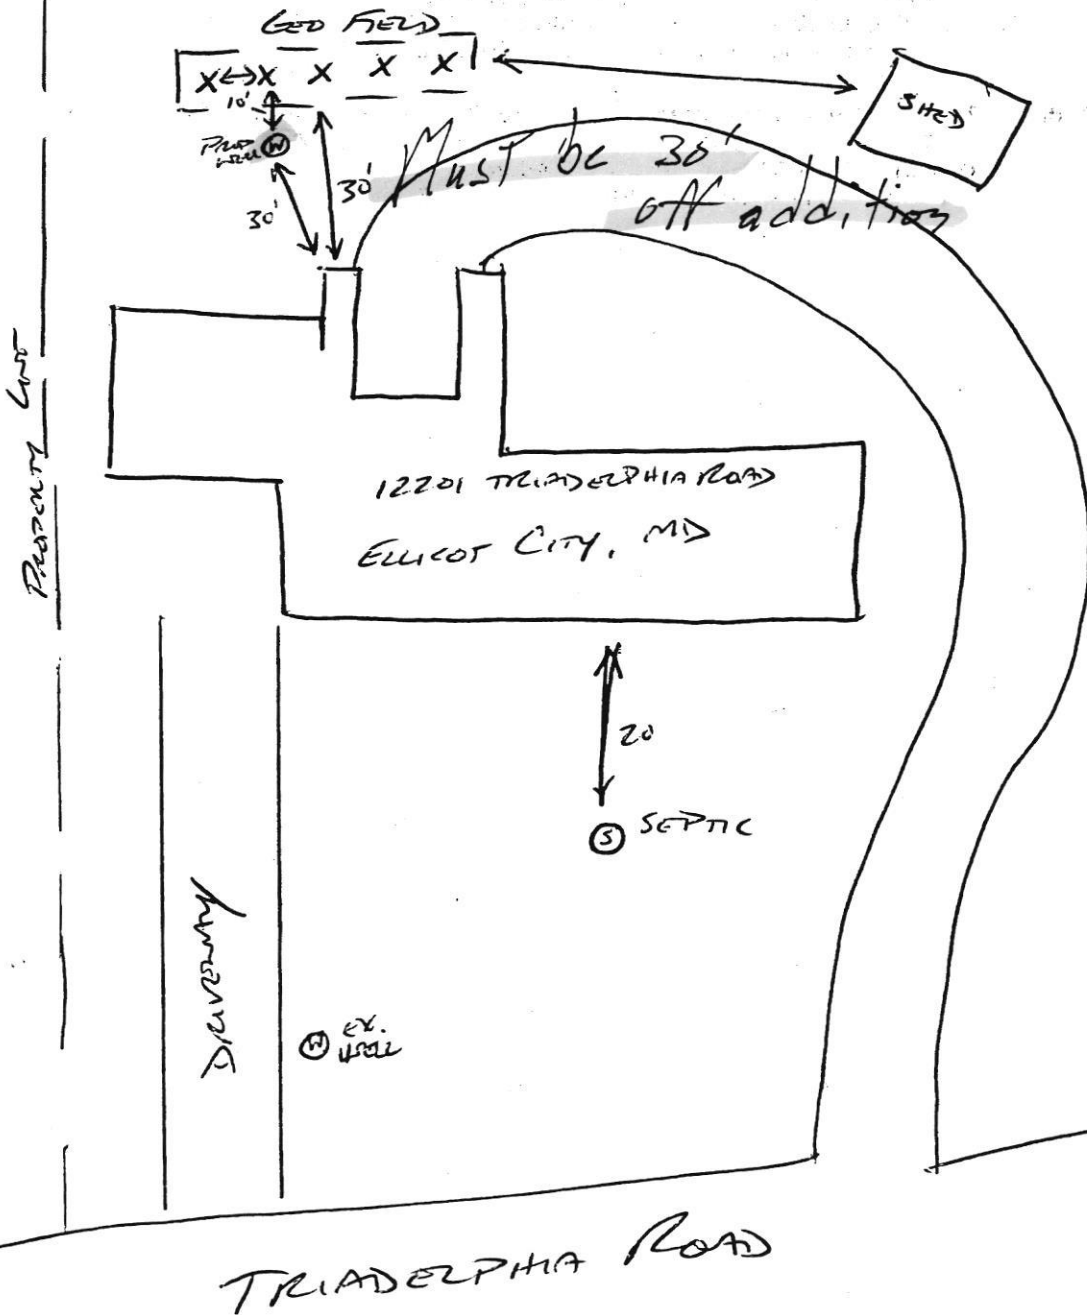 GEO FIELD
X X X X X
10'
SHED
PROP
WELL
W
30'
30'
Must be 30'
off addition
PROPERTY LINE
12201 TRIADELPHIA ROAD
ELLICOT CITY, MD
20
S SEPTIC
DRIVEWAY
W EX.
WELL
TRIADELPHIA ROAD